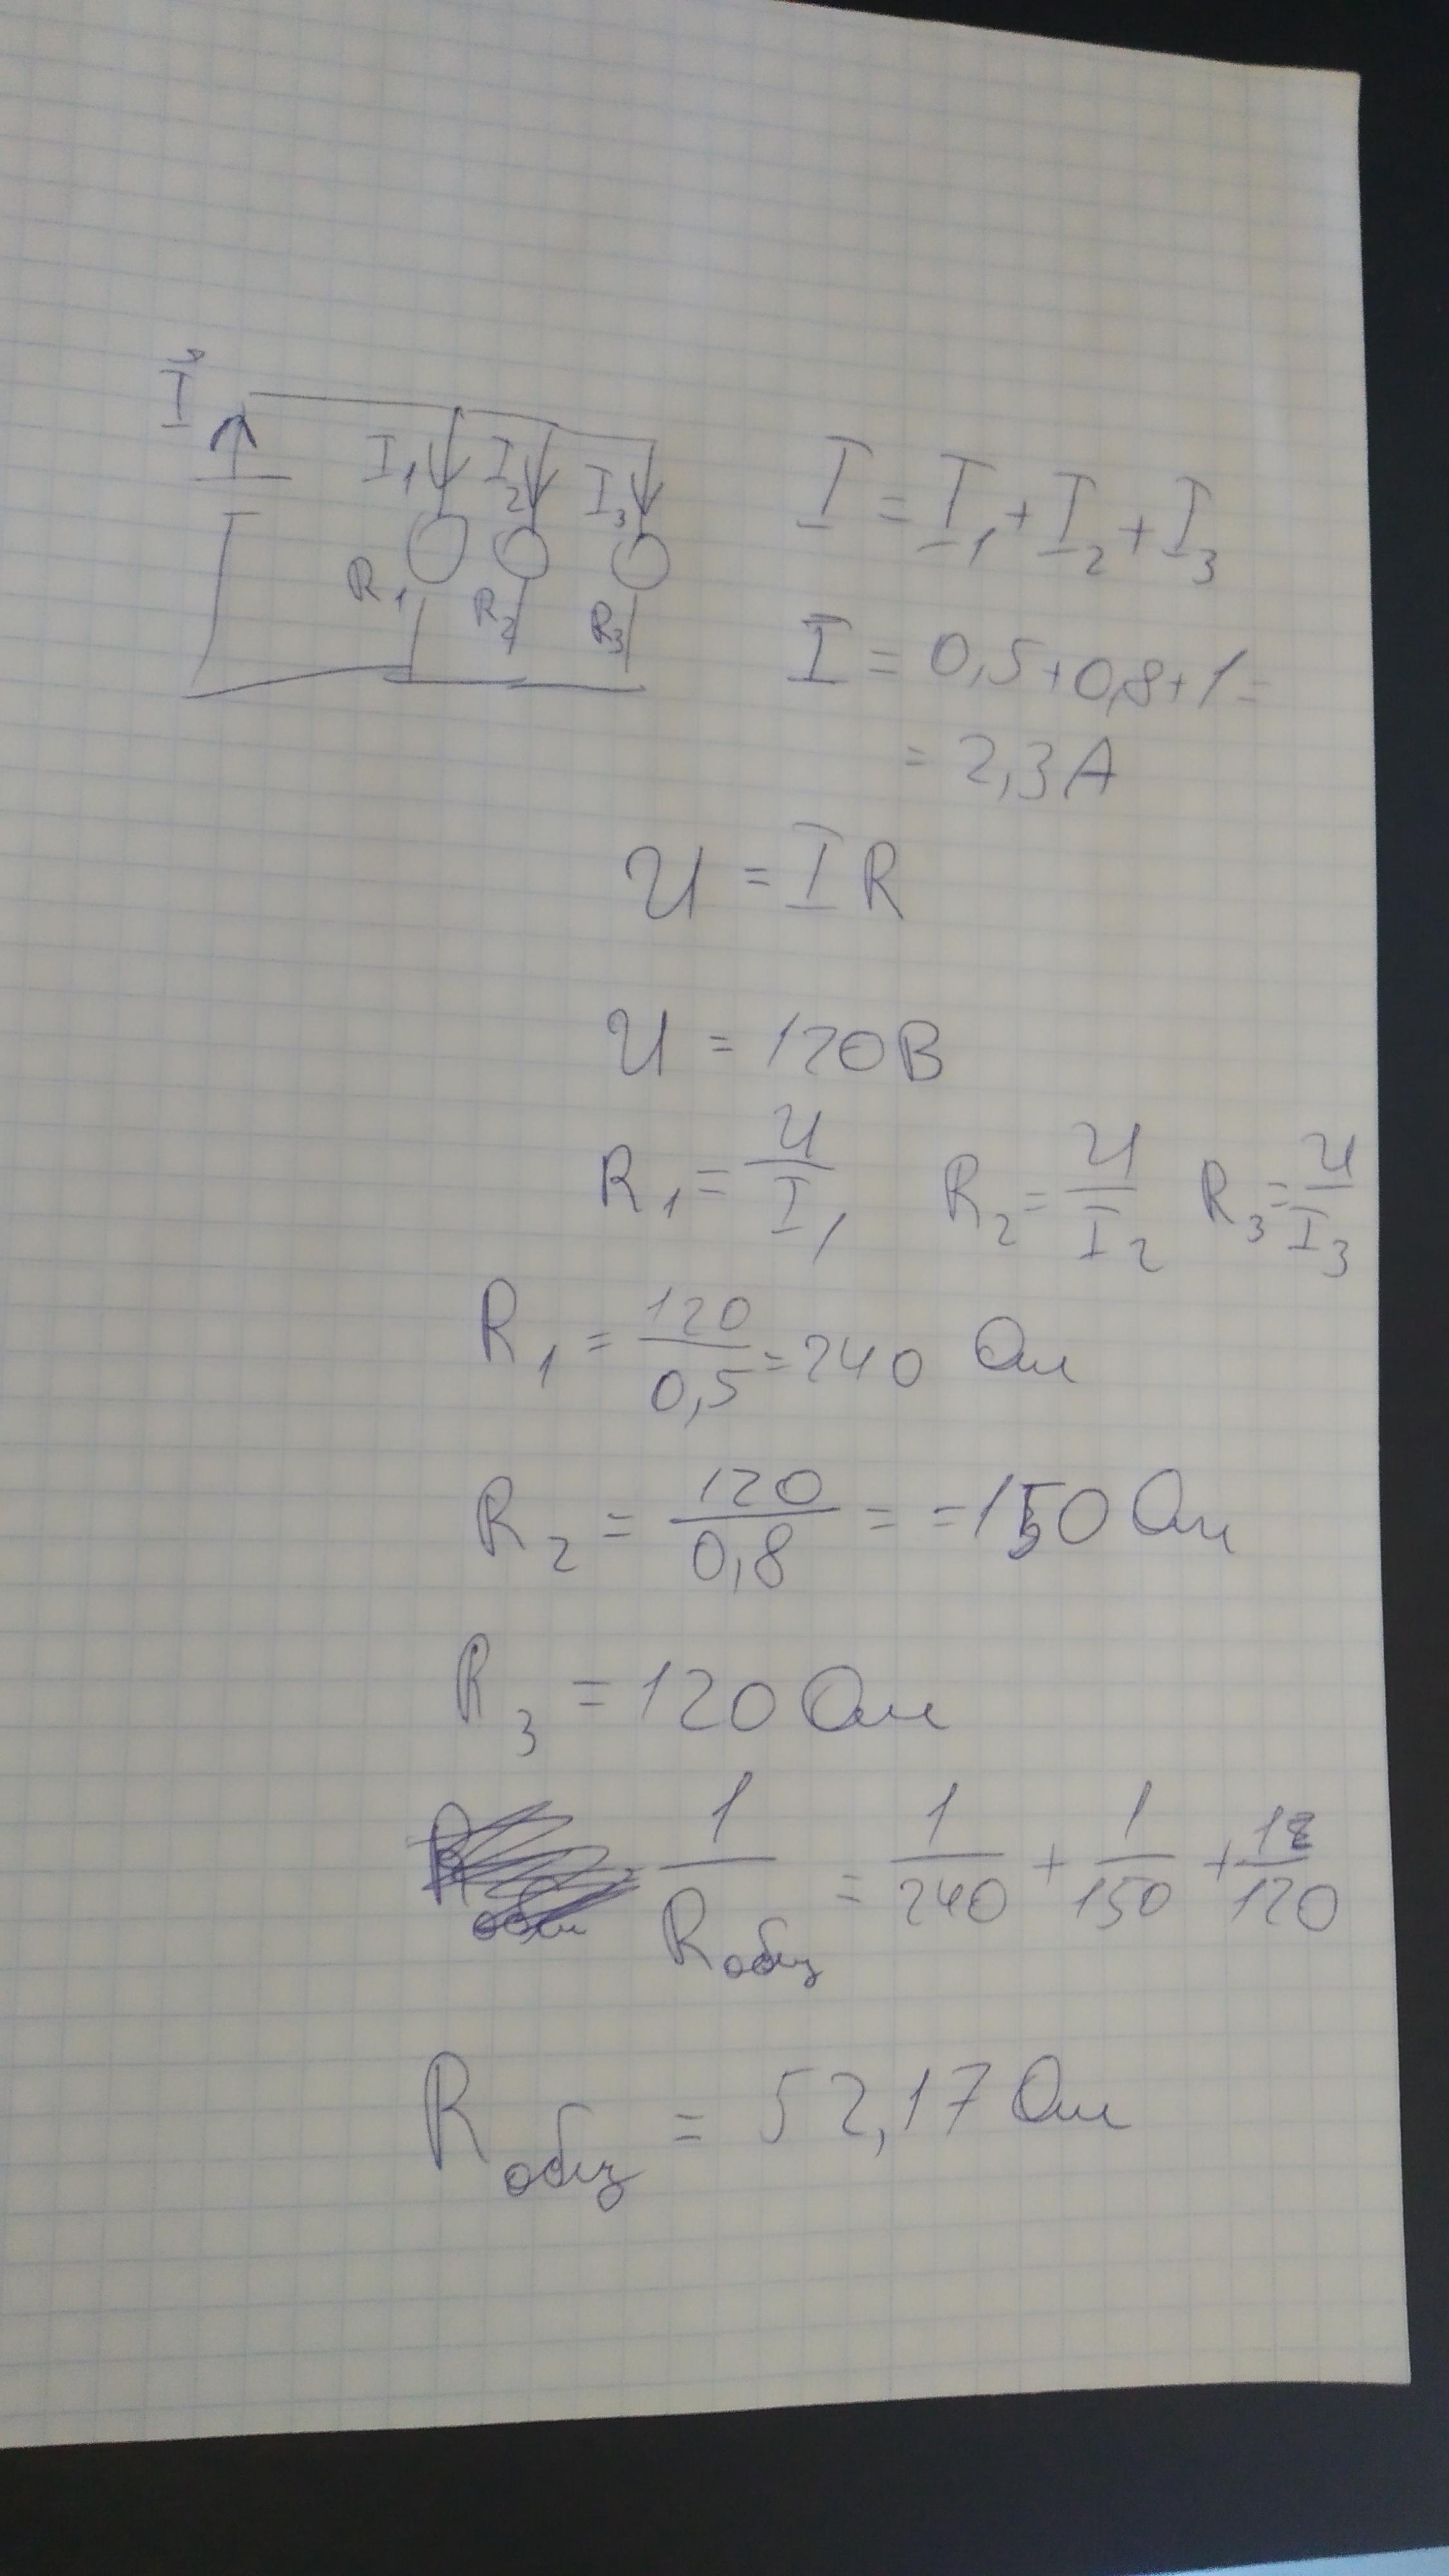 I
I₁ I₂ I₃
R₁ R₂ R₃
I = I₁ + I₂ + I₃
I = 0,5 + 0,8 + 1 =
= 2,3 А
U = I R
U = 120 В
R₁ = U/I₁ R₂ = U/I₂ R₃ = U/I₃
R₁ = 120/0,5 = 240 Ом
R₂ = 120/0,8 = = 150 Ом
R₃ = 120 Ом
1/Rобщ = 1/240 + 1/150 + 1/120
Rобщ = 52,17 Ом